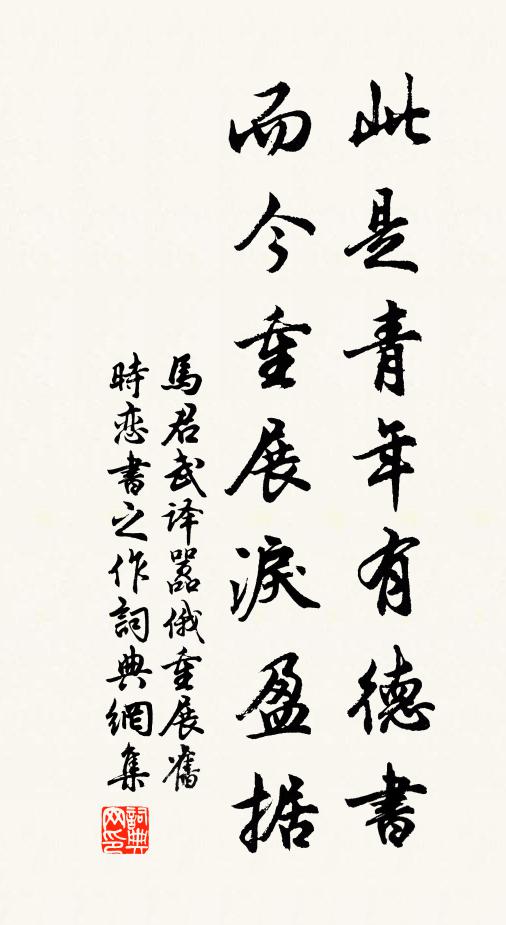 此是青年有德書
而今重展淚盈据
馬君武译嚣俄重展奮
時恋書之作詞典網集
詞典网印